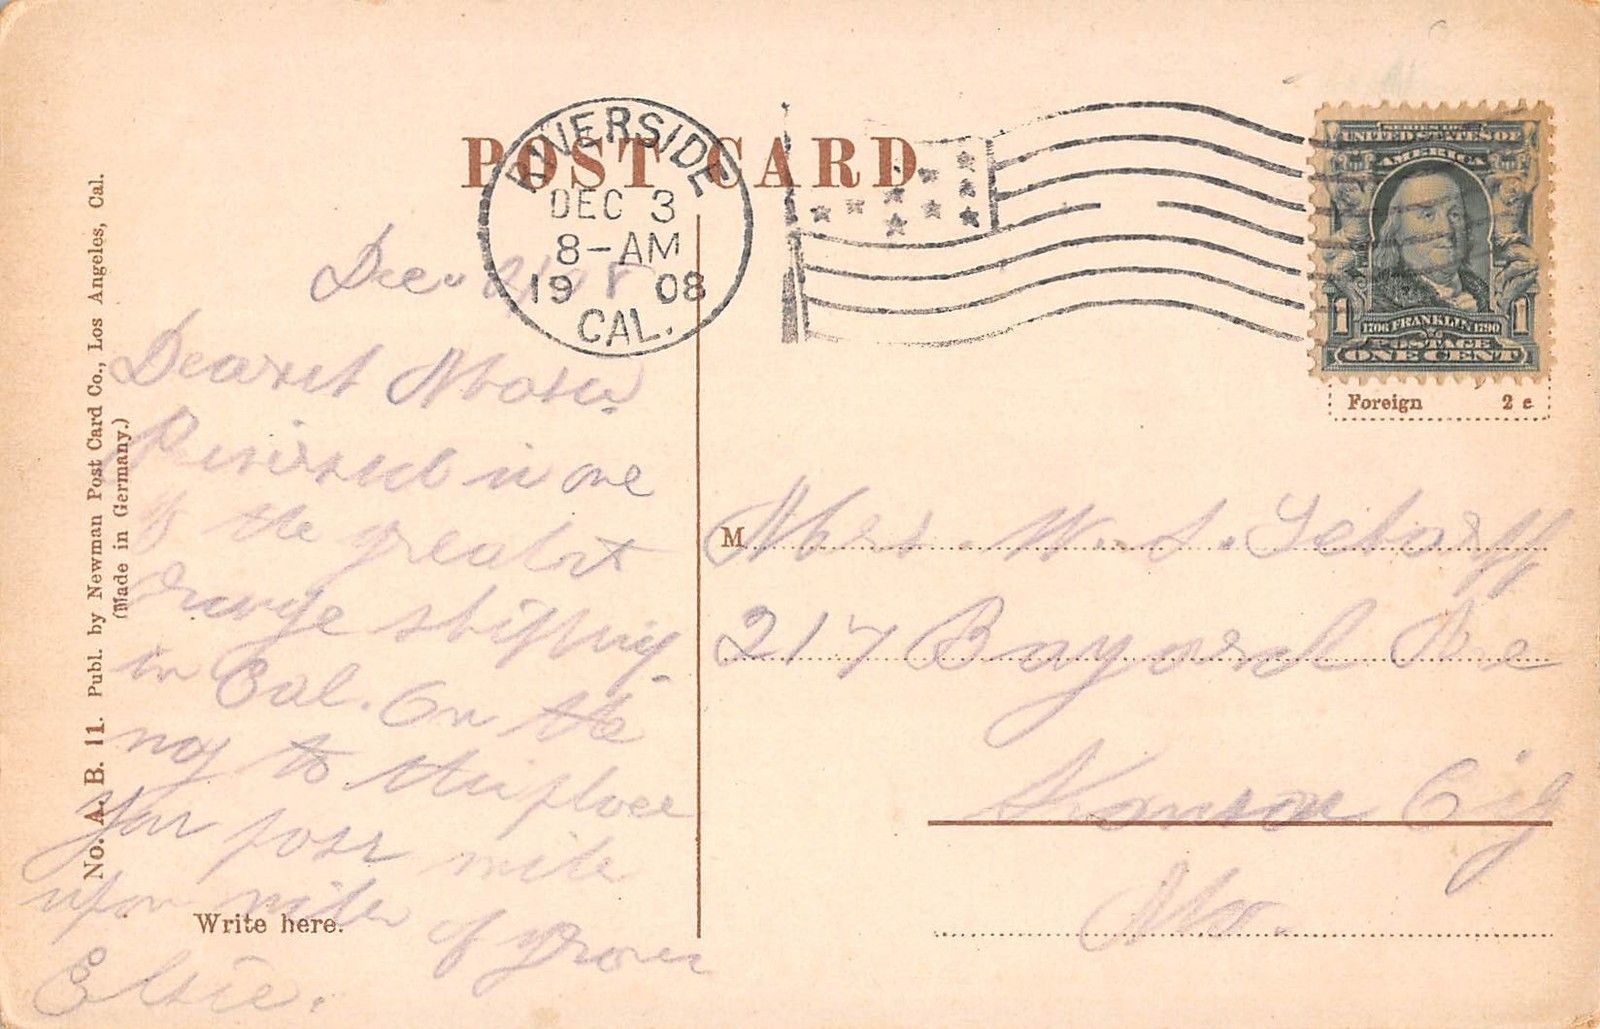 POST CARD
RIVERSIDE
DEC 3
8-AM
1908
CAL.
SERIES 1902
UNITED STATES OF
AMERICA
1 1
1706 FRANKLIN 1790
POSTAGE
ONE CENT
Foreign 2 c
No. A. B. 11. Publ. by Newman Post Card Co., Los Angeles, Cal.
(Made in Germany.)
Dec
Dearest
in one
of the greatest
Orange shipping
in Cal. On the
way to this place
you pass mile
upon miles of groves
Elsie.
Write here.
M
Mrs. W. S.
217 Bayard Ave
Kansas City
Mo.